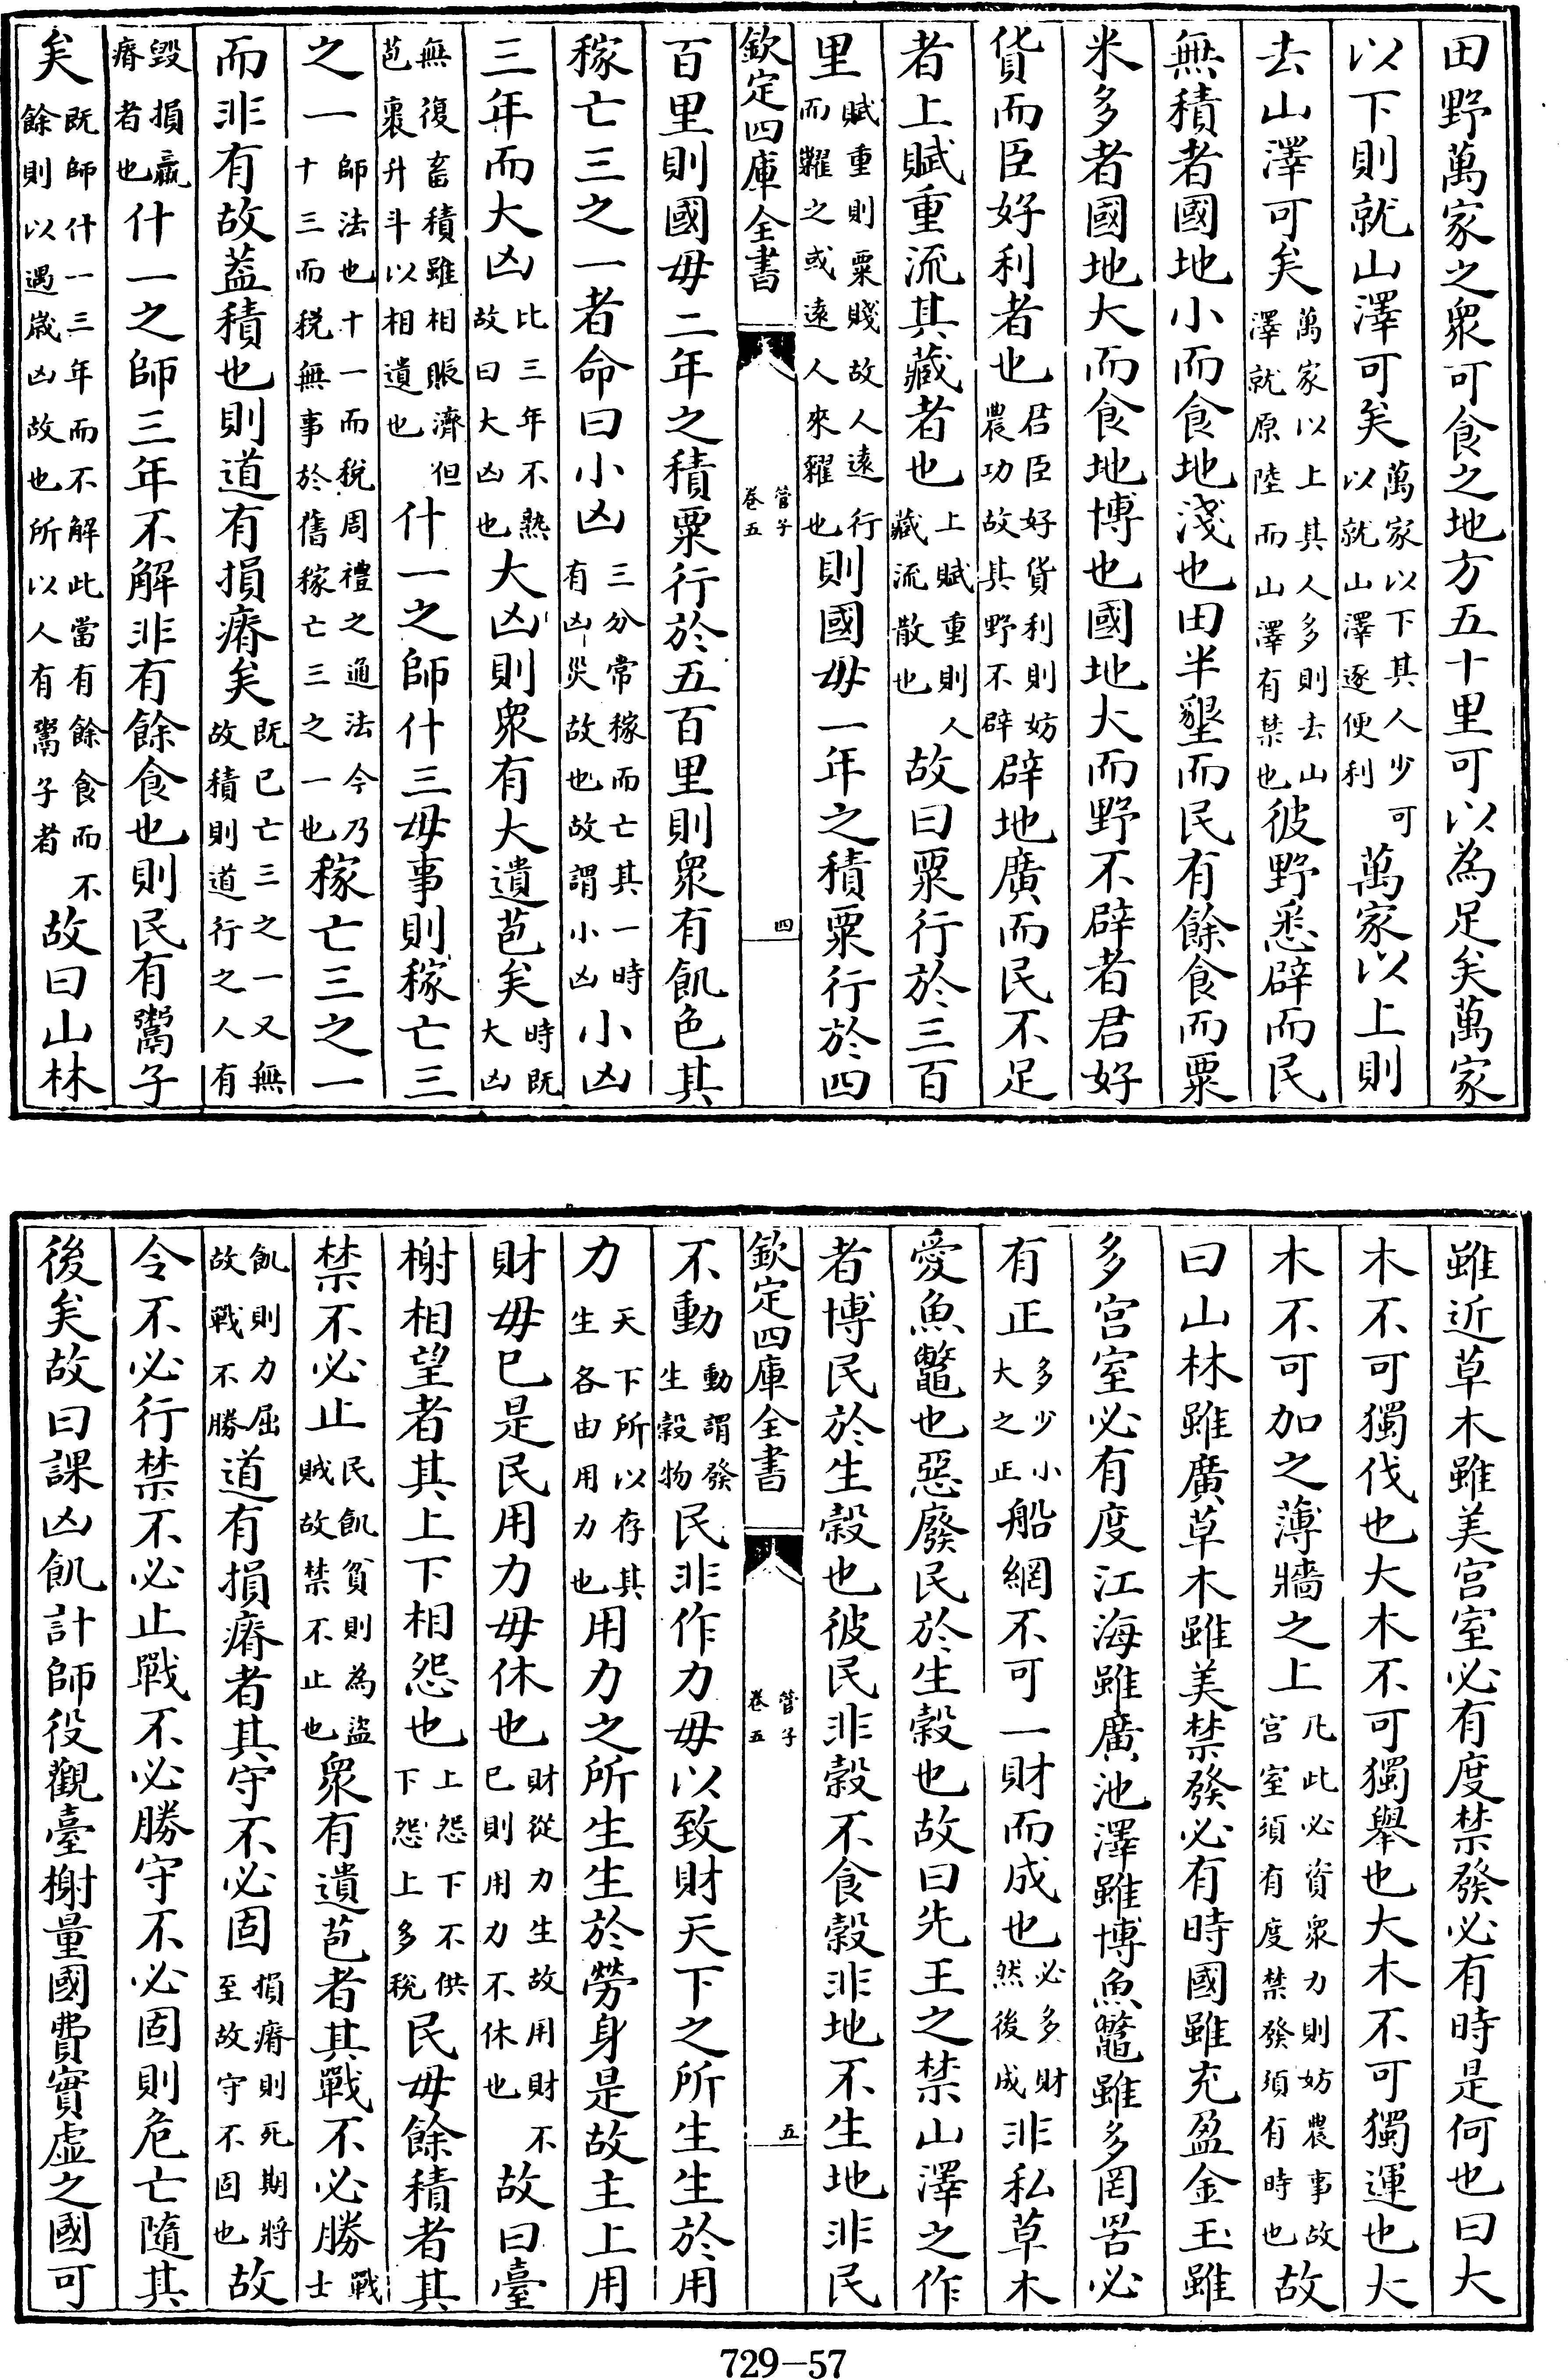 田野萬家之衆可食之地方五十里可以為足矣萬家
以下則就山澤可矣萬家以下其人少可以就山澤逐便利萬家以上則
去山澤可矣萬家以上其人多則去山澤就原陸而山澤有禁也彼野悉辟而民
無積者國地小而食地淺也田半墾而民有餘食而粟
米多者國地大而食地博也國地大而野不辟者君好
貨而臣好利者也君臣好貨利則妨農功故其野不辟辟地廣而民不足
者上賦重流其藏者也上賦重則人藏流散也故曰粟行於三百
里賦重則粟賤故人遠行而糶之或遠人來糴也則國毋一年之積粟行於四
欽定四庫全書 管子 卷五 四
百里則國毋二年之積粟行於五百里則衆有飢色其
稼亡三之一者命曰小凶三分常稼而亡其一時有凶災故也故謂小凶小凶
三年而大凶比三年不熟故曰大凶也大凶則衆有大遺苞矣時既大凶
無復畜積雖相賑濟但苞裹升斗以相遺也什一之師什三毋事則稼亡三
之一師法也十一而稅周禮之通法今乃十三而稅無事於舊稼亡三之一也稼亡三之一
而非有故葢積也則道有損瘠矣既已亡三之一又無故積則道行之人有
毀損羸瘠者也什一之師三年不解非有餘食也則民有鬻子
矣既師什一三年而不解此當有餘食而不餘則以遇歲凶故也所以人有鬻子者故曰山林
雖近草木雖美宫室必有度禁發必有時是何也曰大
木不可獨伐也大木不可獨舉也大木不可獨運也大
木不可加之薄牆之上凡此必資衆力則妨農事故宫室須有度禁發須有時也故
曰山林雖廣草木雖美禁發必有時國雖充盈金玉雖
多宫室必有度江海雖廣池澤雖博魚鼈雖多罔罟必
有正多少小大之正船網不可一財而成也必多財然後成非私草木
愛魚鼈也惡廢民於生穀也故曰先王之禁山澤之作
者博民於生穀也彼民非穀不食穀非地不生地非民
欽定四庫全書 管子 卷五 五
不動動謂發生穀物民非作力毋以致財天下之所生生於用
力天下所以存其生各由用力也用力之所生生於勞身是故主上用
財毋已是民用力毋休也財從力生故用財不已則用力不休也故曰臺
榭相望者其上下相怨也上怨下不供下怨上多稅民毋餘積者其
禁不必止民飢貧則為盜賊故禁不止也衆有遺苞者其戰不必勝戰士
飢則力屈故戰不勝道有損瘠者其守不必固損瘠則死期將至故守不固也故
令不必行禁不必止戰不必勝守不必固則危亡隨其
後矣故曰課凶飢計師役觀臺榭量國費實虛之國可
729-57